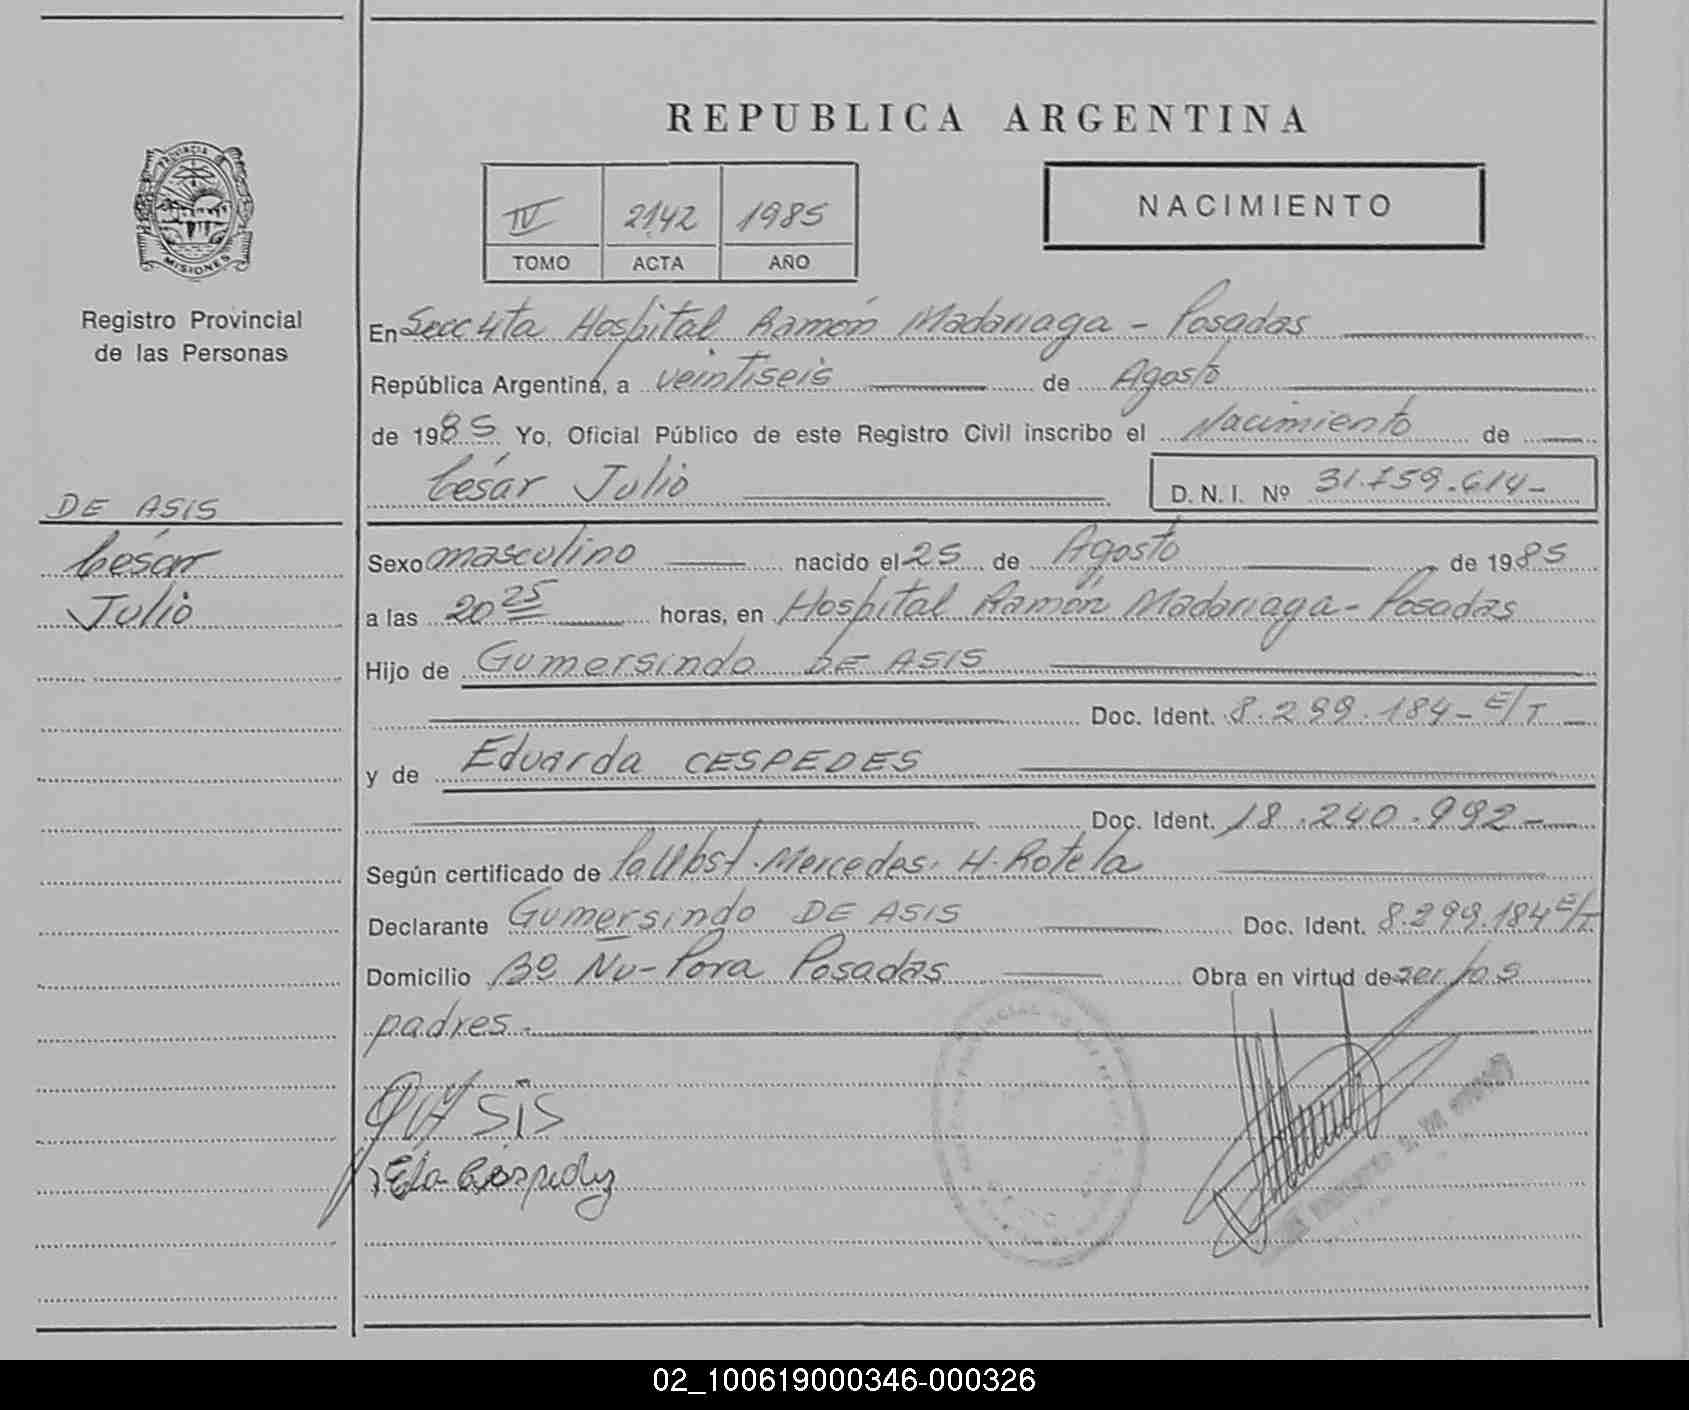 REPUBLICA ARGENTINA
IV 2142 1985
TOMO ACTA AÑO
NACIMIENTO
PROVINCIA DE
MISIONES
Registro Provincial
de las Personas
En Secc 4ta Hospital Ramón Madariaga - Posadas
República Argentina, a veintiseis de Agosto
de 1985 Yo, Oficial Público de este Registro Civil inscribo el Nacimiento de
César Julio D. N. I. Nº 31.759.614-
DE ASIS
César
Julio
Sexo masculino nacido el 25 de Agosto de 1985
a las 20 25 horas, en Hospital Ramón Madariaga - Posadas
Hijo de Gumersindo DE ASIS
Doc. Ident. 8.299.184- E/T
y de Eduarda CESPEDES
Doc. Ident. 18.240.992-
Según certificado de la Obst. Mercedes H. Rotela
Declarante Gumersindo DE ASIS Doc. Ident. 8.299.184 E/T
Domicilio Bº Ñu-Pora Posadas Obra en virtud de ser los
padres.
02_100619000346-000326